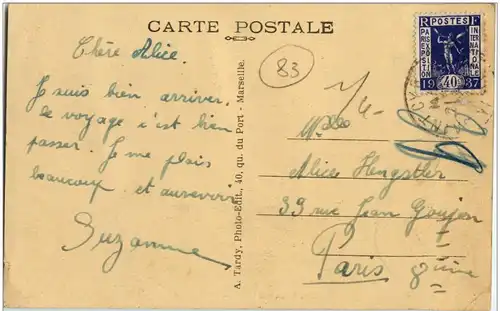 CARTE POSTALE
Chère Alice.
Je suis bien arriver.
le voyage c'est bien
passer. Je me plais
beaucoup et aurevoir
Suzanne
A. Tardy, Photo-Edit., 40, qu. du Port - Marseille.
83
R POSTES F
PARIS EXPOSITION
INTERNATIONALE
19 40c 37
Mlle
Alice Hengstler
39 rue Jean Goujon
Paris 8ième